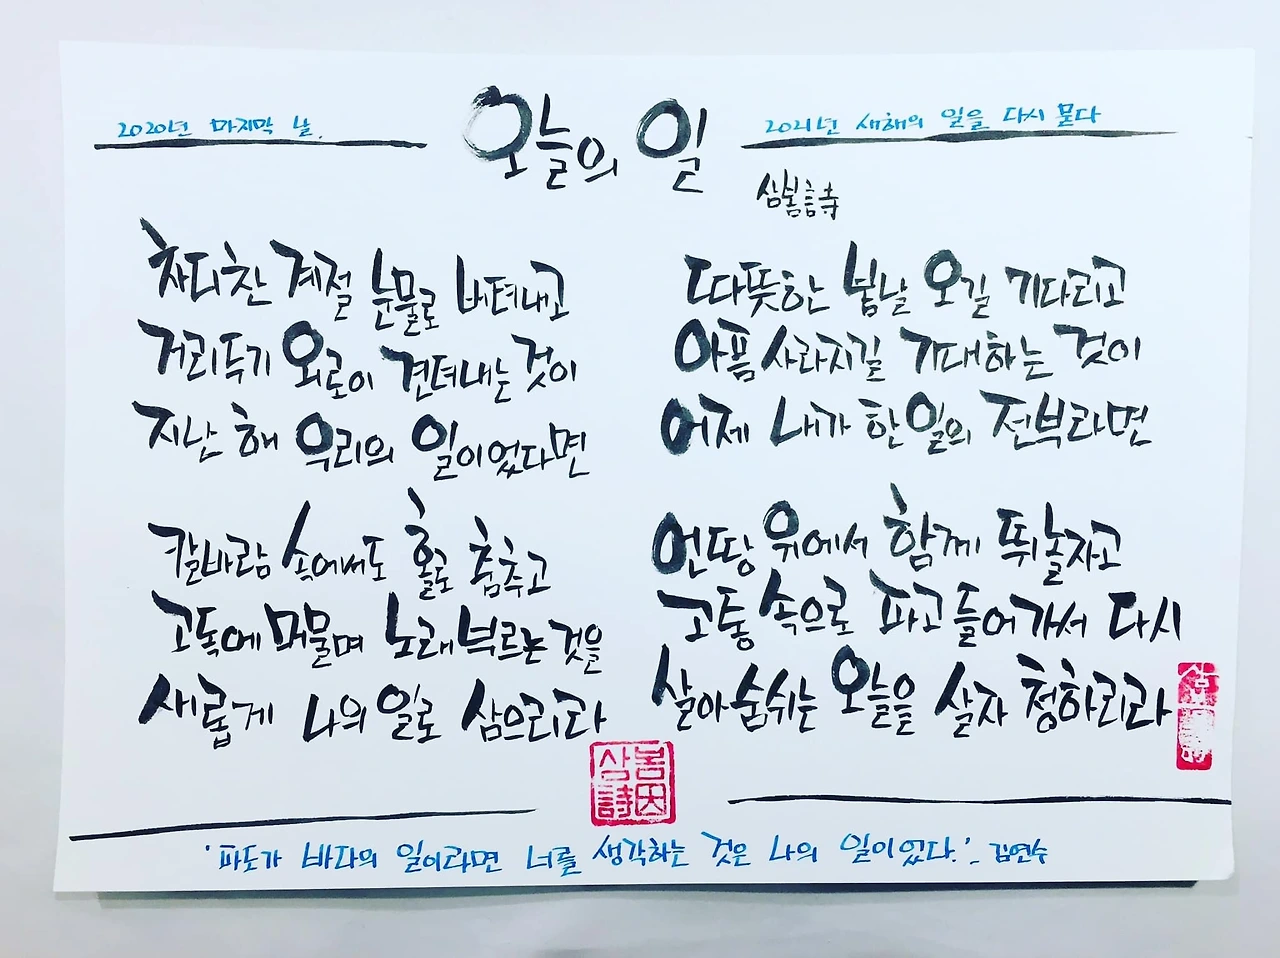 2020년 마지막 날.
오늘의 일
2021년 새해의 일을 다시 묻다
삼봄詩
차디찬 계절 눈물로 버텨내고
거리두기 외로이 견뎌내는 것이
지난 해 우리의 일이었다면
칼바람 속에서도 홀로 춤추고
고독에 머물며 노래부르는 것을
새롭게 나의 일로 삼으리라
따뜻한 봄날 오길 기다리고
아픔 사라지길 기대하는 것이
어제 내가 한 일의 전부라면
언땅 위에서 함께 뛰놀자고
고통 속으로 파고들어가서 다시
살아 숨쉬는 오늘을 살자 청하리라
삼봄
詩因
삼봄詩
'파도가 바다의 일이라면 너를 생각하는 것은 나의 일이었다.'_ 김연수